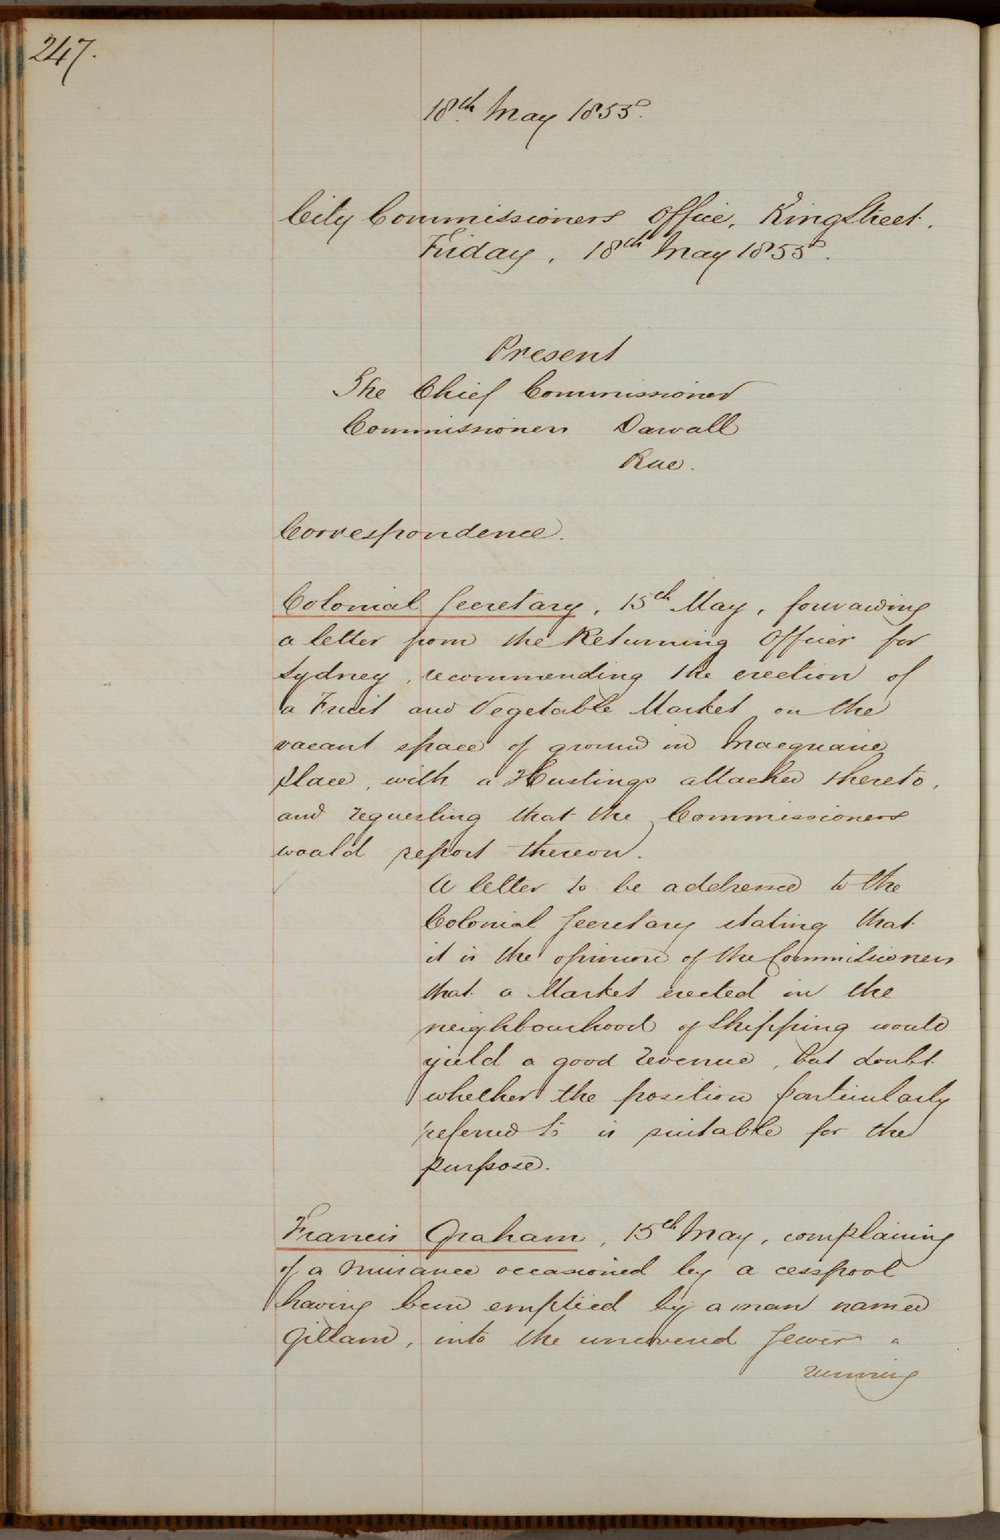 247.
18th May 1855.
City Commissioners Office, King Street.
Friday, 18th May 1855.
Present
The Chief Commissioner
Commissioners Darvall
Rae.
Correspondence.
Colonial Secretary, 15th May, forwarding
a letter from the Returning Officer for
Sydney, recommending the erection of
a Fruit and Vegetable Market on the
vacant space of ground in Macquarie
Place, with a Hustings attached thereto,
and requesting that the Commissioners
would report thereon.
A letter to be addressed to the
Colonial Secretary stating that
it is the opinion of the Commissioners
that a Market erected in the
neighbourhood of Shipping would
yield a good revenue, but doubt
whether the position particularly
referred to is suitable for the
purpose.
Francis Graham, 15th May, complaining
of a nuisance occasioned by a cesspool
having been emptied by a man named
Gillam, into the uncovered Sewer
running